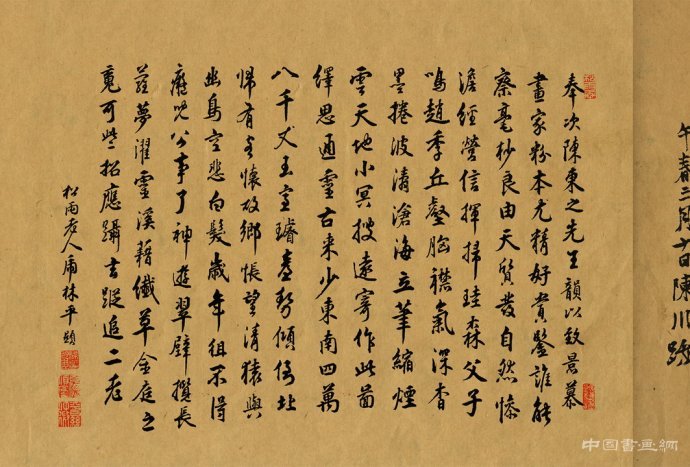 午春三月十日陳川跋
奉次陳東之先生韻以致景慕
畫家粉本尤精好賞鑒誰能
察毫杪良由天質發自然慘
澹經營信揮掃珪森父子
鳴趙季丘壑胸襟氣深杳
墨捲波濤滄海立筆縮煙
雲天地小冥搜遠寄作此畵
繹思通靈古來少東南四萬
八千丈玉室璿臺勢傾倚北
帰有客懷故鄉悵望清猿與
幽鳥空悲白髮歲年徂不得
癡兒公事了神遊翠壁攬長
蘿夢濯靈溪藉纖草金庭之
魂可些招應躡玄蹤追二老
松雨老人虎林平顯
中国書画網